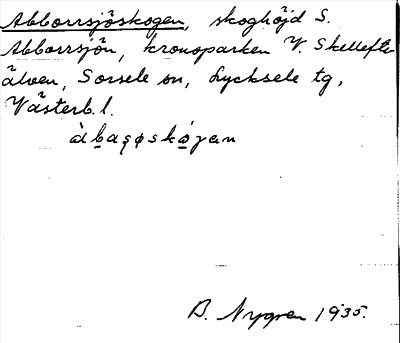 Abborrsjöskogen, skoghöjd S.
Abborrsjön, kronoparken V. Skellefte
älven, Sorsele sn, Lycksele tg,
Västerb. l.
àbaʂøskó̱gan
B. Nygren 1935.